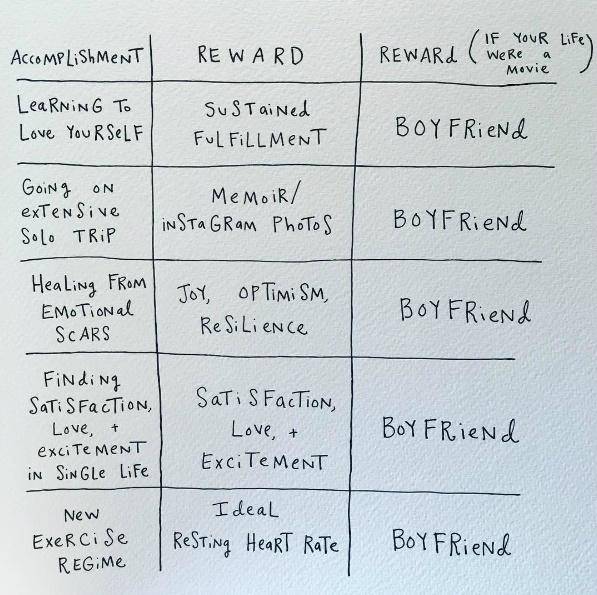 ACCOMPLiSHMeNT
REWARD
REWARd (IF YouR LiFe
WeRe a
Movie)
LeaRNiNG To
Love YouRSeLF
SuSTaiNed
FuLFiLLMeNT
BOYFRieNd
GoiNg oN
exTeNSive
SoLo TRiP
MeMoiR/
iNSTaGRam PHoToS
BOYFRieNd
HeaLiNg FRoM
EMoTioNaL
ScARS
JoY, OPTiMiSM,
ReSiLieNce
BOYFRieNd
FiNdiNg
SaTiSFacTioN,
Love, +
exciTeMeNT
iN SiNGLe LiFe
SaTiSFacTioN,
Love, +
ExciTeMeNT
BoYFRieNd
New
ExeRCiSe
REGiMe
IdeaL
ReSTiNg HeaRT RaTe
BoYFRieNd